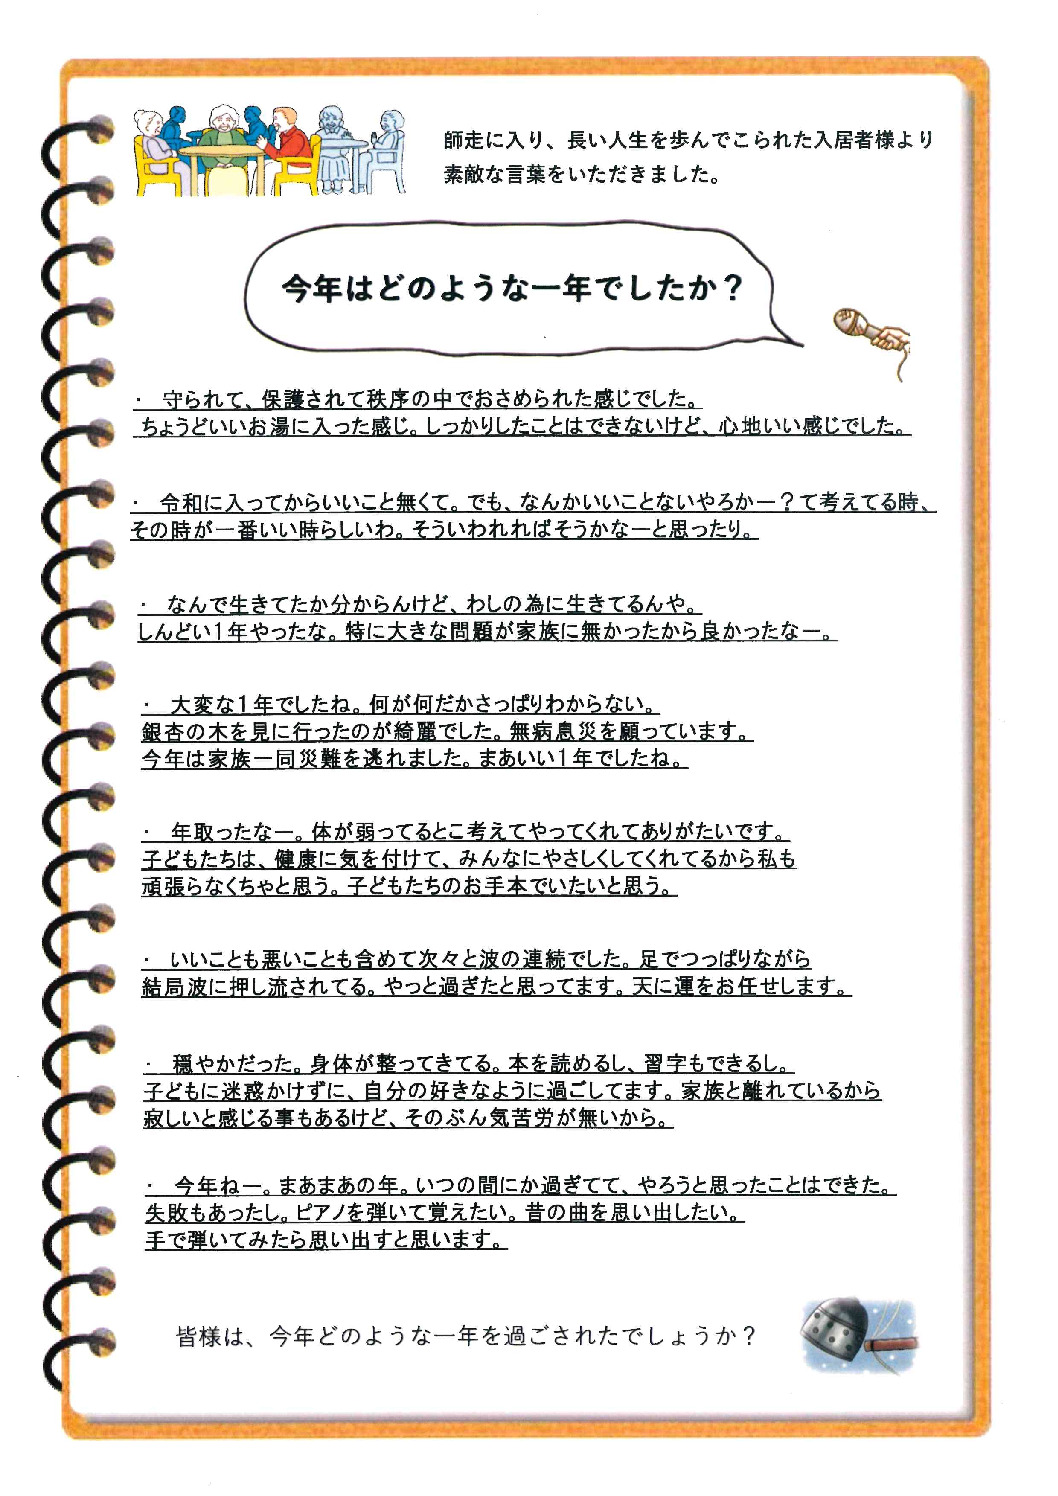 師走に入り、長い人生を歩んでこられた入居者様より
素敵な言葉をいただきました。
今年はどのような一年でしたか？
・　守られて、保護されて秩序の中でおさめられた感じでした。
ちょうどいいお湯に入った感じ。しっかりしたことはできないけど、心地いい感じでした。
・　令和に入ってからいいこと無くて。でも、なんかいいことないやろかー？て考えてる時、
その時が一番いい時らしいわ。そういわれればそうかなーと思ったり。
・　なんで生きてたか分からんけど、わしの為に生きてるんや。
しんどい１年やったな。特に大きな問題が家族に無かったから良かったなー。
・　大変な１年でしたね。何が何だかさっぱりわからない。
銀杏の木を見に行ったのが綺麗でした。無病息災を願っています。
今年は家族一同災難を逃れました。まあいい１年でしたね。
・　年取ったなー。体が弱ってるとこ考えてやってくれてありがたいです。
子どもたちは、健康に気を付けて、みんなにやさしくしてくれてるから私も
頑張らなくちゃと思う。子どもたちのお手本でいたいと思う。
・　いいことも悪いことも含めて次々と波の連続でした。足でつっぱりながら
結局波に押し流されてる。やっと過ぎたと思ってます。天に運をお任せします。
・　穏やかだった。身体が整ってきてる。本を読めるし、習字もできるし。
子どもに迷惑かけずに、自分の好きなように過ごしてます。家族と離れているから
寂しいと感じる事もあるけど、そのぶん気苦労が無いから。
・　今年ねー。まあまあの年。いつの間にか過ぎてて、やろうと思ったことはできた。
失敗もあったし。ピアノを弾いて覚えたい。昔の曲を思い出したい。
手で弾いてみたら思い出すと思います。
皆様は、今年どのような一年を過ごされたでしょうか？